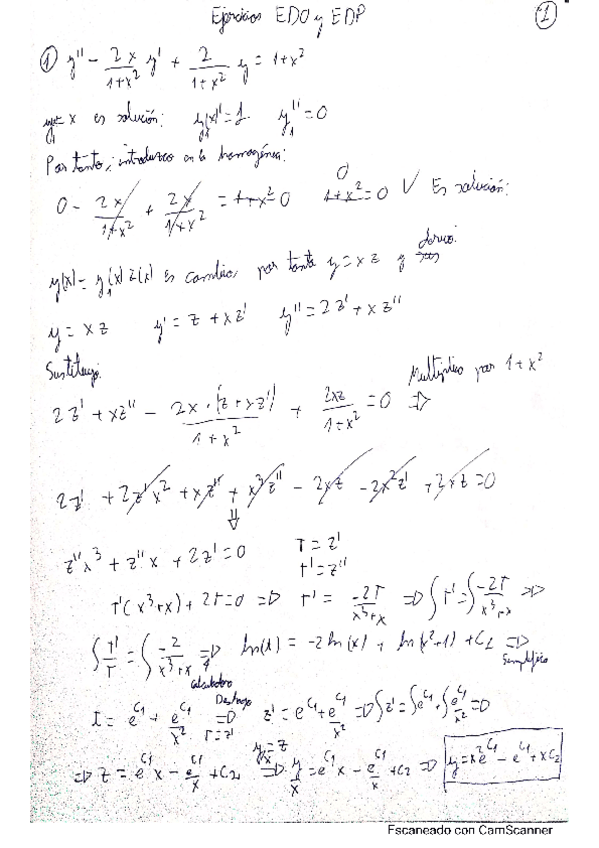 Ejercicios EDO y EDP
1
① y'' - 2x/(1+x²) y' + 2/(1+x²) y = 1+x²
y₁ = x es solución: y₁(x)' = 1 y₁'' = 0
Por tanto, introduzco en la homogénea:
0 - 2x/(1+x²) + 2x/(1+x²) = 1+x² 0 0 1+x² = 0 ✓ Es solución:
y(x) = y₁(x) z(x) es cambio, por tanto y = xz y derivo:
y = xz y' = z + xz' y'' = 2z' + xz''
Sustituyo: Multiplico por 1+x²
2z' + xz'' - 2x·(z+xz')/(1+x²) + 2xz/(1+x²) = 0 ⇒
2z' + 2z'x² + xz'' + x³z'' - 2xz - 2x²z' + 2xz = 0
⇓
z''x³ + z''x + 2z' = 0 T = z'
T' = z''
T'(x³+x) + 2T = 0 ⇒ T' = -2T/(x³+x) ⇒ ∫T' = ∫-2T/(x³+x) ⇒
∫T'/T = ∫-2/(x³+x) ⇒ ln(t) = -2ln(x) + ln(x²+1) + C₁ ⇒
Calculadora Simplifico
t = e^C₁ + e^C₁/x² ⇒ Deshago T=z' z' = e^C₁ + e^C₁/x² ⇒ ∫z' = ∫e^C₁ + ∫e^C₁/x² ⇒
⇒ z = e^C₁ x - e^C₁/x + C₂ ⇒ y/x = z y/x = e^C₁ x - e^C₁/x + C₂ ⇒ y = x² e^C₁ - e^C₁ + xC₂
Escaneado con CamScanner